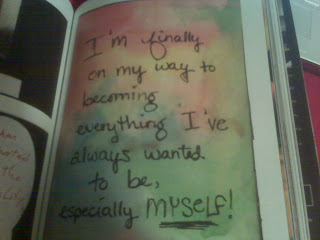 I'm finally
on my way to
becoming
everything I've
always wanted
to be,
especially MYSELF!